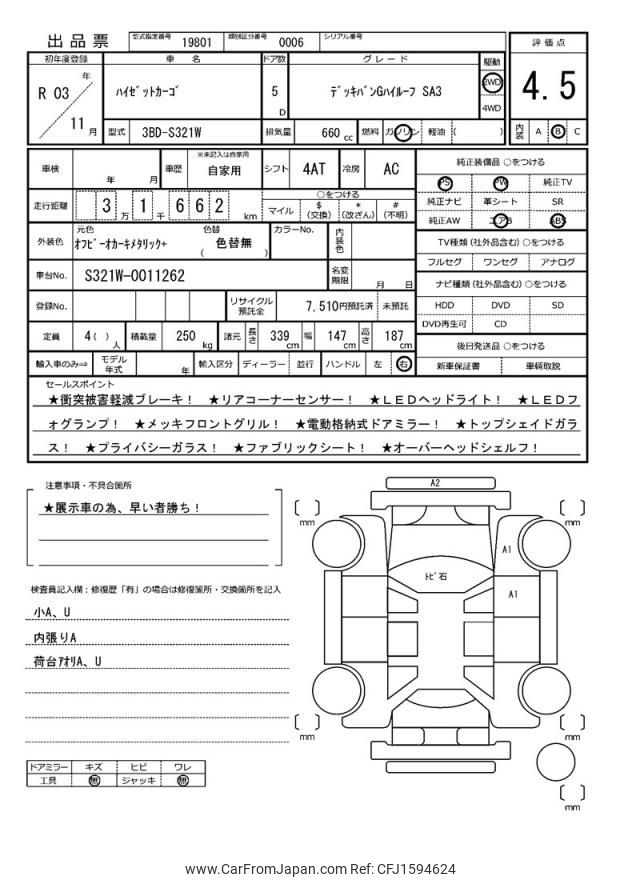 出品票 型式指定番号 19801 類別区分番号 0006 シリアル番号
評価点
4.5
内装 A B C
初年度登録 車名 ドア数 グレード 駆動
R 03 年 11 月
ハイゼットカーゴ 5 D デッキバンGハイルーフ SA3 2WD
4WD
型式 3BD-S321W 排気量 660 cc 燃料 ガソリン 軽油 ( )
車検 年 月 車歴 ※未記入は自家用 自家用 シフト 4AT 冷房 AC
走行距離 3 万 1 千 6 6 2 km
○をつける
マイル $(交換) *(改ざん) #(不明)
外装色 元色 オフビーオカーキメタリック+ 色替 色替無 ( ) カラーNo. 内装色
車台No. S321W-0011262 名変期限 月 日
登録No. リサイクル預託金 7,510円預託済 未預託
定員 4( ) 人 積載量 250 kg 諸元 長さ 339 cm 幅 147 cm 高さ 187 cm
輸入車のみ⇒ モデル年式 年 輸入区分 ディーラー 並行 ハンドル 左 右
純正装備品 ○をつける
PS PW 純正TV
純正ナビ 革シート SR
純正AW エアB ABS
TV種類(社外品含む)○をつける
フルセグ ワンセグ アナログ
ナビ種類(社外品含む)○をつける
HDD DVD SD
DVD再生可 CD
後日発送品 ○をつける
新車保証書 車輌取説
セールスポイント
★衝突被害軽減ブレーキ! ★リアコーナーセンサー! ★LEDヘッドライト! ★LEDフ
ォグランプ! ★メッキフロントグリル! ★電動格納式ドアミラー! ★トップシェイドガラ
ス! ★プライバシーガラス! ★ファブリックシート! ★オーバーヘッドシェルフ!
注意事項・不具合箇所
★展示車の為、早い者勝ち!
検査員記入欄:修復歴「有」の場合は修復箇所・交換箇所を記入
小A、U
内張りA
荷台アオリA、U
ドアミラー キズ ヒビ ワレ
工具 無 ジャッキ 無
A2
mm
mm
A1
トビ石
A1
mm
mm
mm
www.CarFromJapan.com Ref: CFJ1594624